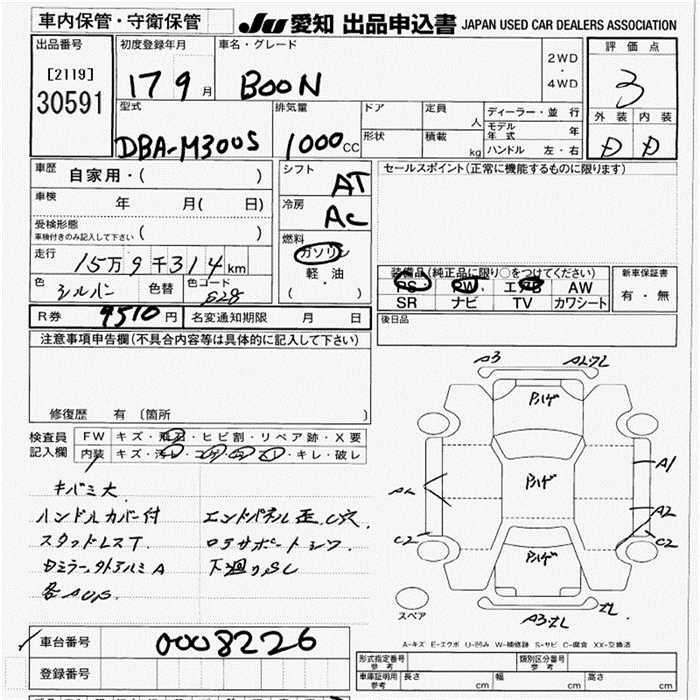 車内保管・守衛保管
JU 愛知 出品申込書 JAPAN USED CAR DEALERS ASSOCIATION
出品番号
[2119]
30591
初度登録年月
17 9 月
車名・グレード
BOON
2WD
・
4WD
評価点
3
外装 内装
D D
型式
DBA-M300S
排気量
1000 CC
ドア
形状
定員
人
積載
kg
ディーラー・並行
モデル年式 年
ハンドル 左・右
車歴
自家用・( )
車検
年 月( 日)
受検形態
車検付きのみ記入して下さい ( )
走行
15万9千314km
色
シルバー
色替
色コード
S28
シフト
AT
冷房
AC
燃料
ガソリン
軽・油
( ・ )
セールスポイント(正常に機能するものに限ります)
装備品(純正品に限り○をつけてください)
PS PW エアB AW
SR ナビ TV カワシート
新車保証書
有・無
R券 9510円
名変通知期限 月 日
後日品
注意事項申告欄(不具合内容等は具体的に記入して下さい)
修復歴 有 〔箇所 〕
検査員
記入欄
FW キズ・飛石・ヒビ割・リペア跡・X要
内装 キズ・汚レ・コゲ・穴・スレ・キレ・破レ
キバミ大
ハンドルカバー付
スタッドレスT.
エンドパネル歪.C穴.
コアサポートシワ.
下廻りSC
A3
Pハゲ
Pハゲ
Pハゲ
A1
A2
C2
C2
スペア
A-キズ E-エクボ U-凹み W-補修跡 S-サビ C-腐食 XX-交換済
車台番号
0008226
登録番号
形式指定番号
参考
類別区分番号
参考
車庫証明用
参考
長さ cm
幅 cm
高さ cm